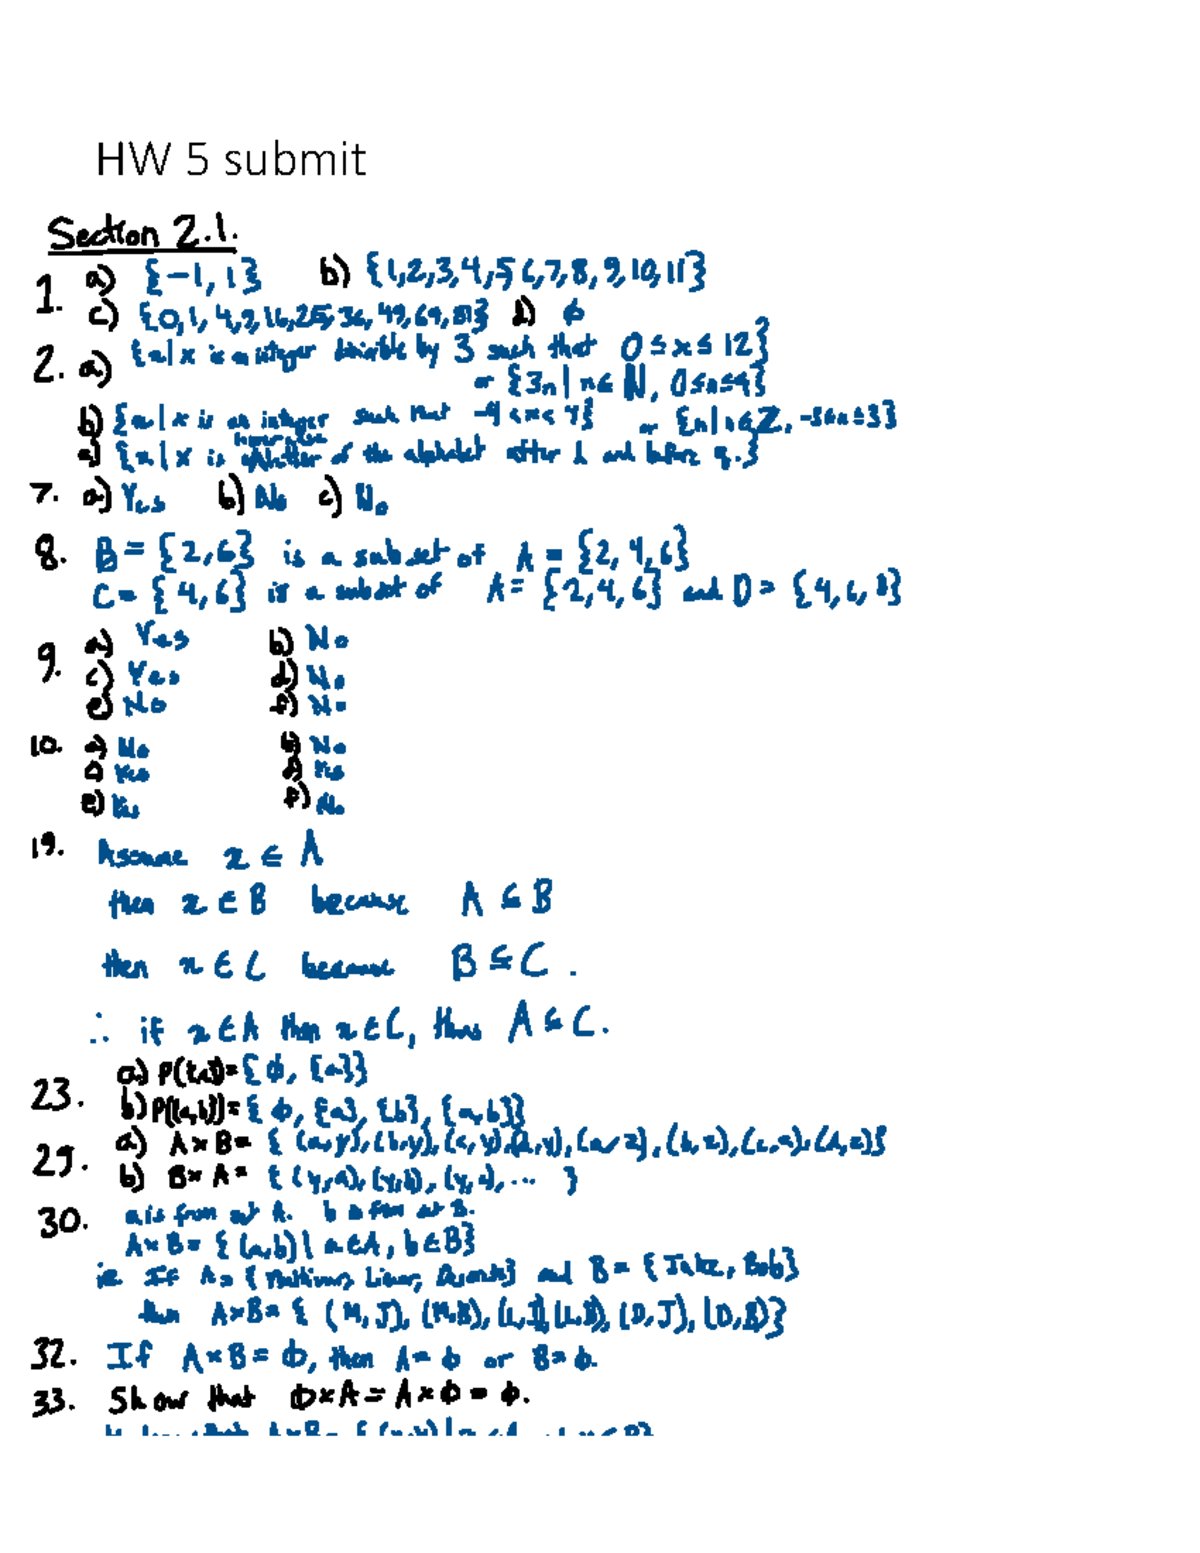 HW 5 submit
Section 2.1.
1. a) {-1, 1} b) {1,2,3,4,5,6,7,8,9,10,11}
c) {0,1,4,9,16,25,36,49,64,81} d) ϕ
2. a) {x | x is an integer divisible by 3 such that 0 ≤ x ≤ 12}
or {3n | n ∈ ℕ, 0≤n≤4}
b) {x | x is an integer such that -4 < x < 4} or {n | n ∈ Z, -3≤n≤3}
c) {x | x is letter of the alphabet after l and before q.}
7. a) Yes b) No c) No
8. B = {2,6} is a subset of A = {2, 4, 6}
C = {4,6} is a subset of A = {2,4,6} and D = {4,6,8}
9. a) Yes b) No
c) Yes d) No
e) No f) No
10. a) No b) No
c) Yes d) Yes
e) Yes f) No
19. Assume x ∈ A
then x ∈ B because A ⊆ B
then x ∈ C because B ⊆ C.
∴ if x ∈ A then x ∈ C, thus A ⊆ C.
23. a) P({a}) = {ϕ, {a}}
b) P({a,b}) = {ϕ, {a}, {b}, {a,b}}
29. a) A × B = {(a,y),(b,y),(c,y),(d,y),(a,z),(b,z),(c,z),(d,z)}
b) B × A = {(y,a),(y,b),(y,c),... }
30. a is from set A. b is from set B.
A × B = {(a,b) | a ∈ A, b ∈ B}
ie If A = { and B = {Jake, Bob}
then A×B = {(M,J), (M,B), (L,J),(L,B), (D,J), (D,B)}
32. If A × B = ϕ, then A = ϕ or B = ϕ.
33. Show that ϕ × A = A × ϕ = ϕ.